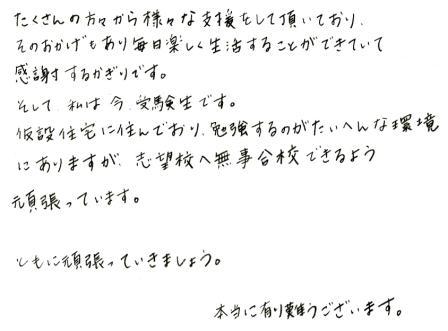 たくさんの方々から様々な支援をして頂いており、
そのおかげもあり毎日楽しく生活することができていて
感謝するかぎりです。
そして、私は今、受験生です。
仮設住宅に住んでおり、勉強するのがたいへんな環境
にありますが、志望校へ無事合格できるよう
頑張っています。
ともに頑張っていきましょう。
本当に有り難うございます。